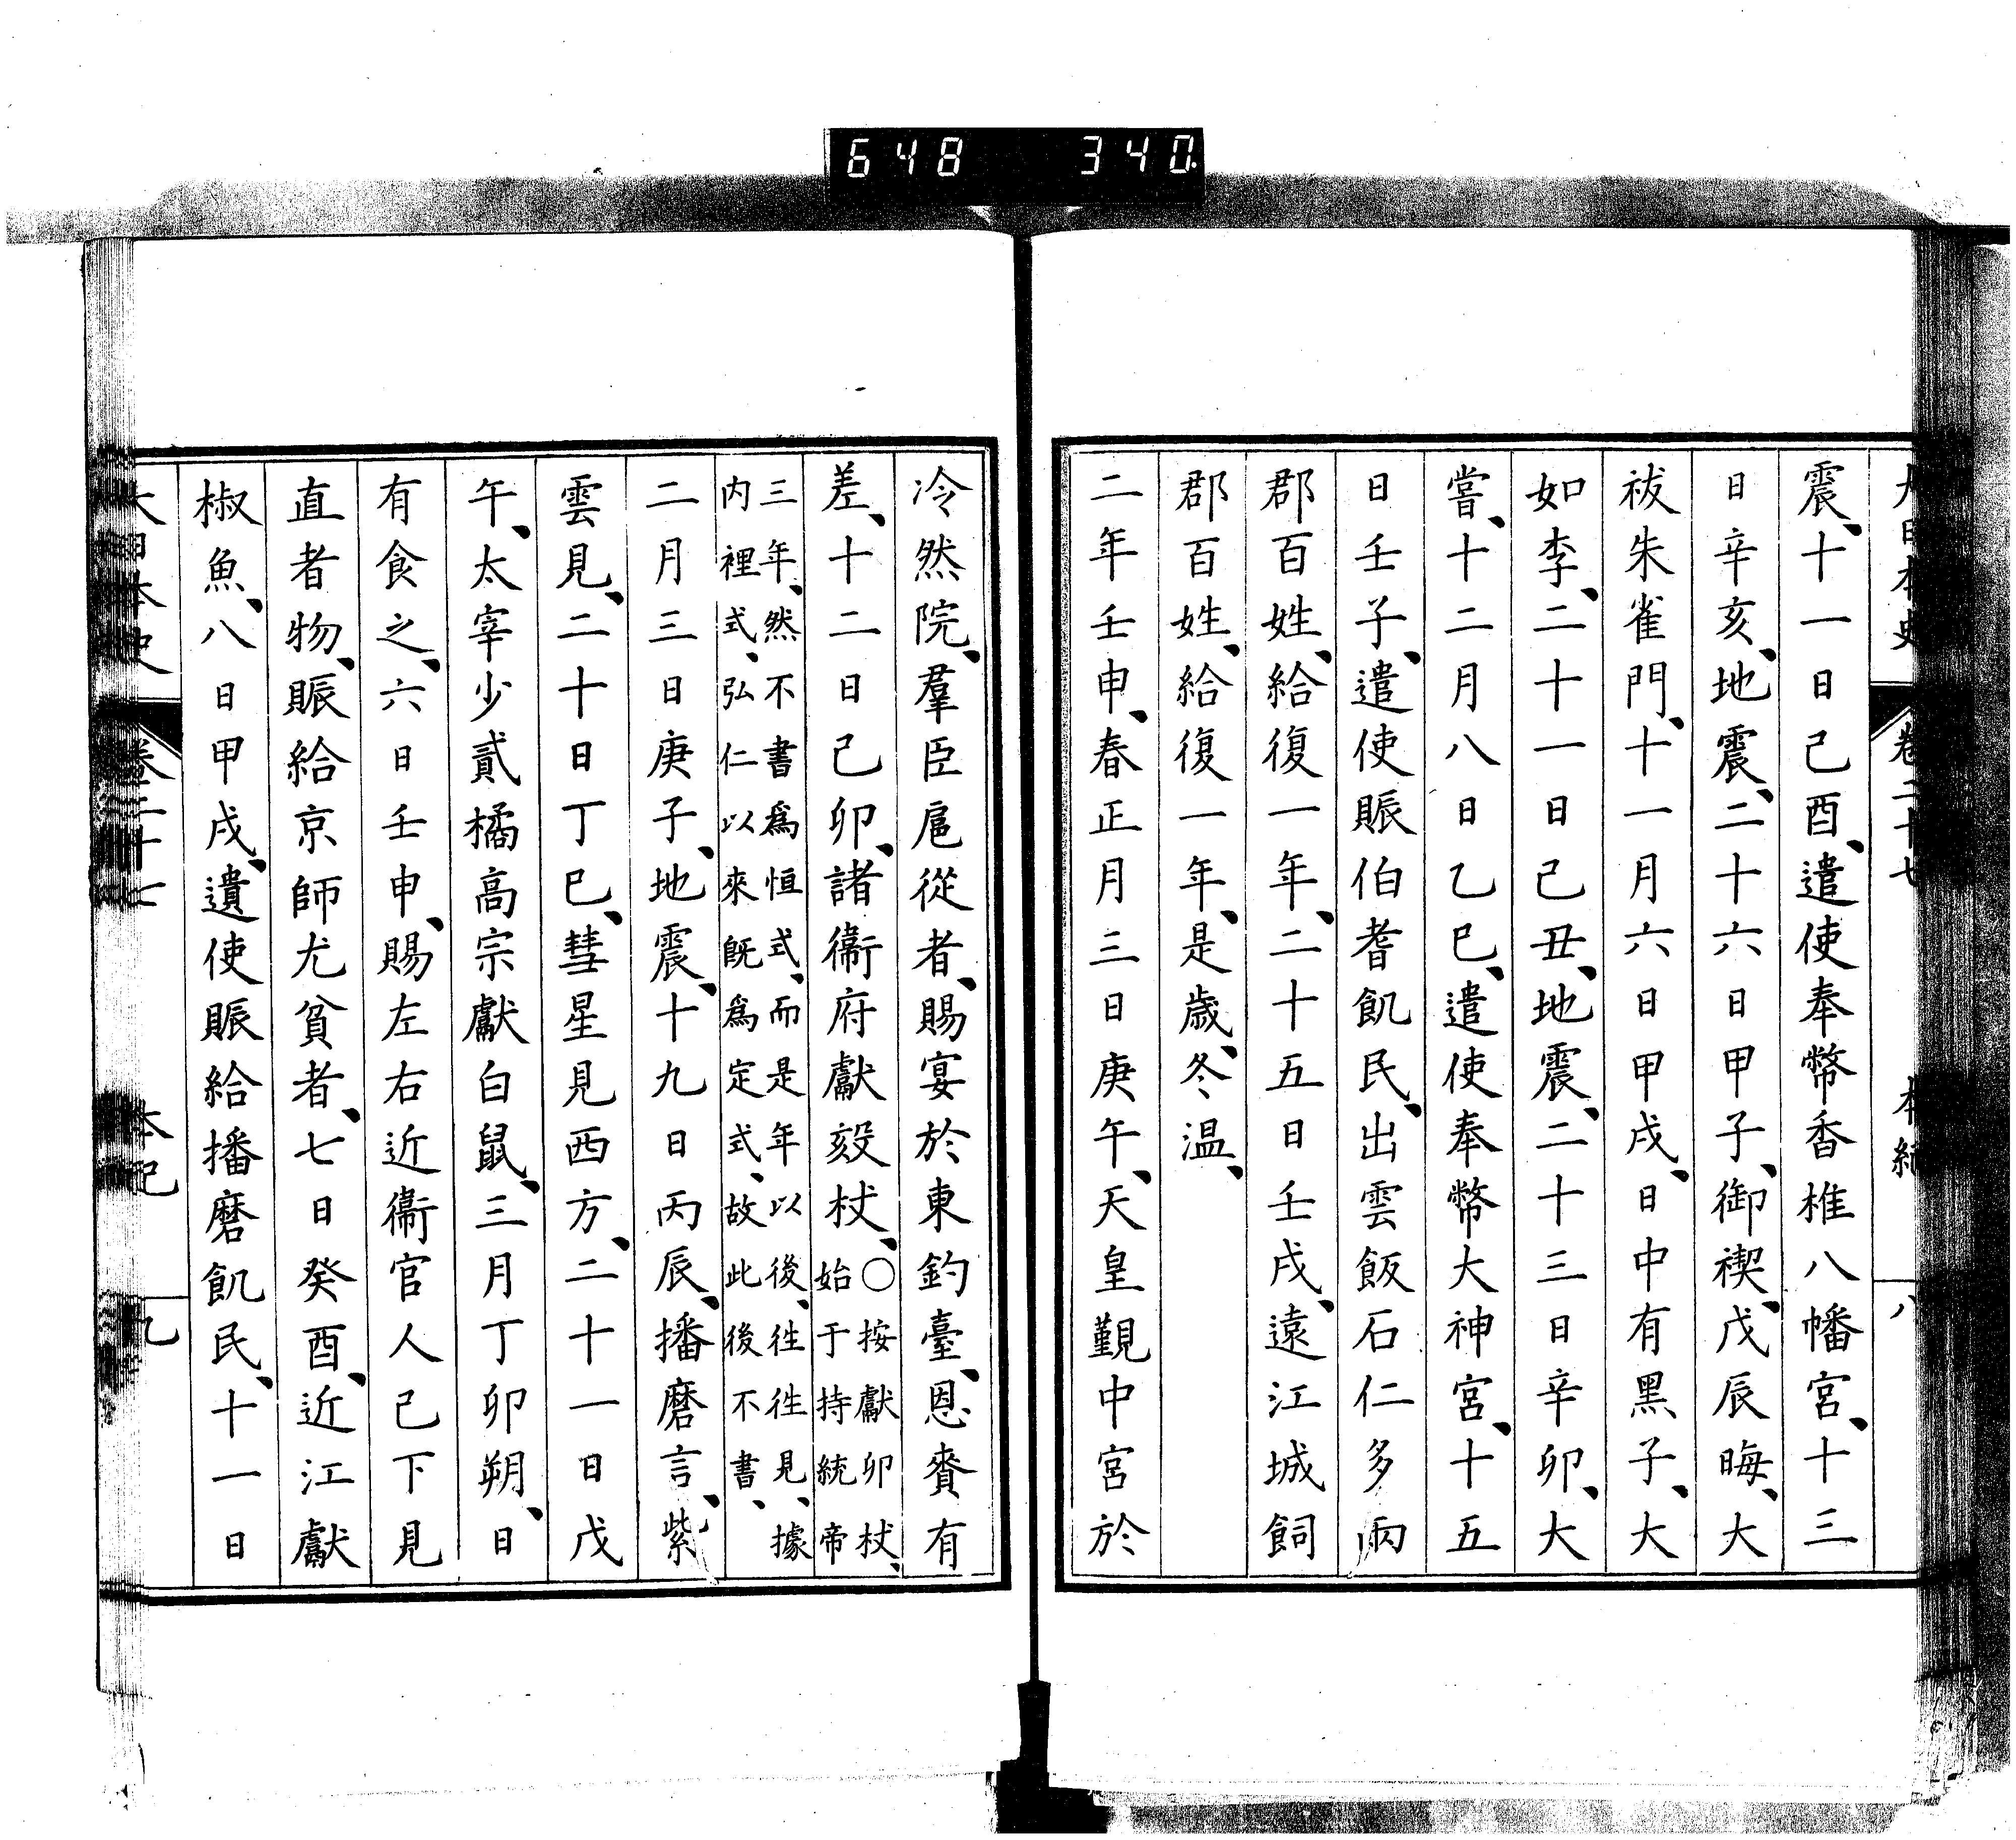 648 340.
大日本史 卷二十七 本紀 八
震、十一日己酉、遣使奉幣香椎八幡宮、十三
日辛亥、地震、二十六日甲子、御禊、戊辰晦、大
祓朱雀門、十一月六日甲戌、日中有黑子、大
如李、二十一日己丑、地震、二十三日辛卯、大
嘗、十二月八日乙巳、遣使奉幣大神宮、十五
日壬子、遣使賑伯耆飢民、出雲飯石仁多兩
郡百姓、給復一年、二十五日壬戌、遠江城飼
郡百姓、給復一年、是歲、冬温、
二年壬申、春正月三日庚午、天皇覲中宮於
冷然院、羣臣扈從者、賜宴於東釣臺、恩賚有
差、十二日己卯、諸衞府獻剛杖、〇按獻卯杖、始于持統帝
三年、然不書爲恒式、而是年以後、徃徃見、據
内裡式、弘仁以來既爲定式、故此後不書、
二月三日庚子、地震、十九日丙辰、播磨言、紫
雲見、二十日丁巳、彗星見西方、二十一日戊
午、太宰少貳橘高宗獻白鼠、三月丁卯朔、日
有食之、六日壬申、賜左右近衞官人已下見
直者物、賑給京師尤貧者、七日癸酉、近江獻
椒魚、八日甲戌、遣使賑給播磨飢民、十一日
大日本史 卷二十七 本紀 九